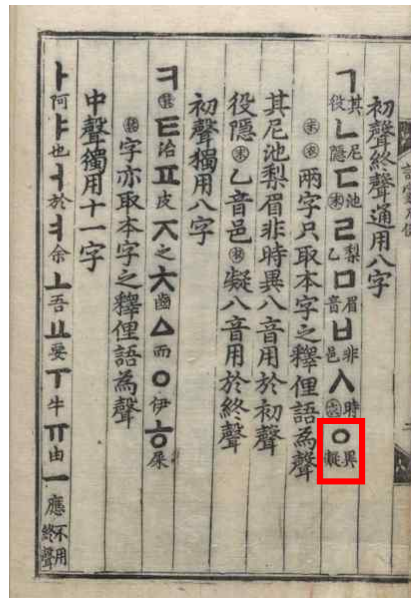 初聲終聲通用八字
ㄱ其役ㄴ尼隱ㄷ池末ㄹ梨乙ㅁ眉音ㅂ非邑ㅅ時衣ㆁ異凝
末衣兩字只取本字之釋俚語為聲
其尼池梨眉非時異八音用於初聲
役隱末乙音邑衣凝八音用於終聲
初聲獨用八字
ㅋ箕ㅌ治ㅍ皮ㅈ之ㅊ齒ㅿ而ㅇ伊ㅎ屎
箕字亦取本字之釋俚語為聲
中聲獨用十一字
ㅏ阿ㅑ也ㅓ於ㅕ余ㅗ吾ㅛ要ㅜ牛ㅠ由ㅡ應不用終聲